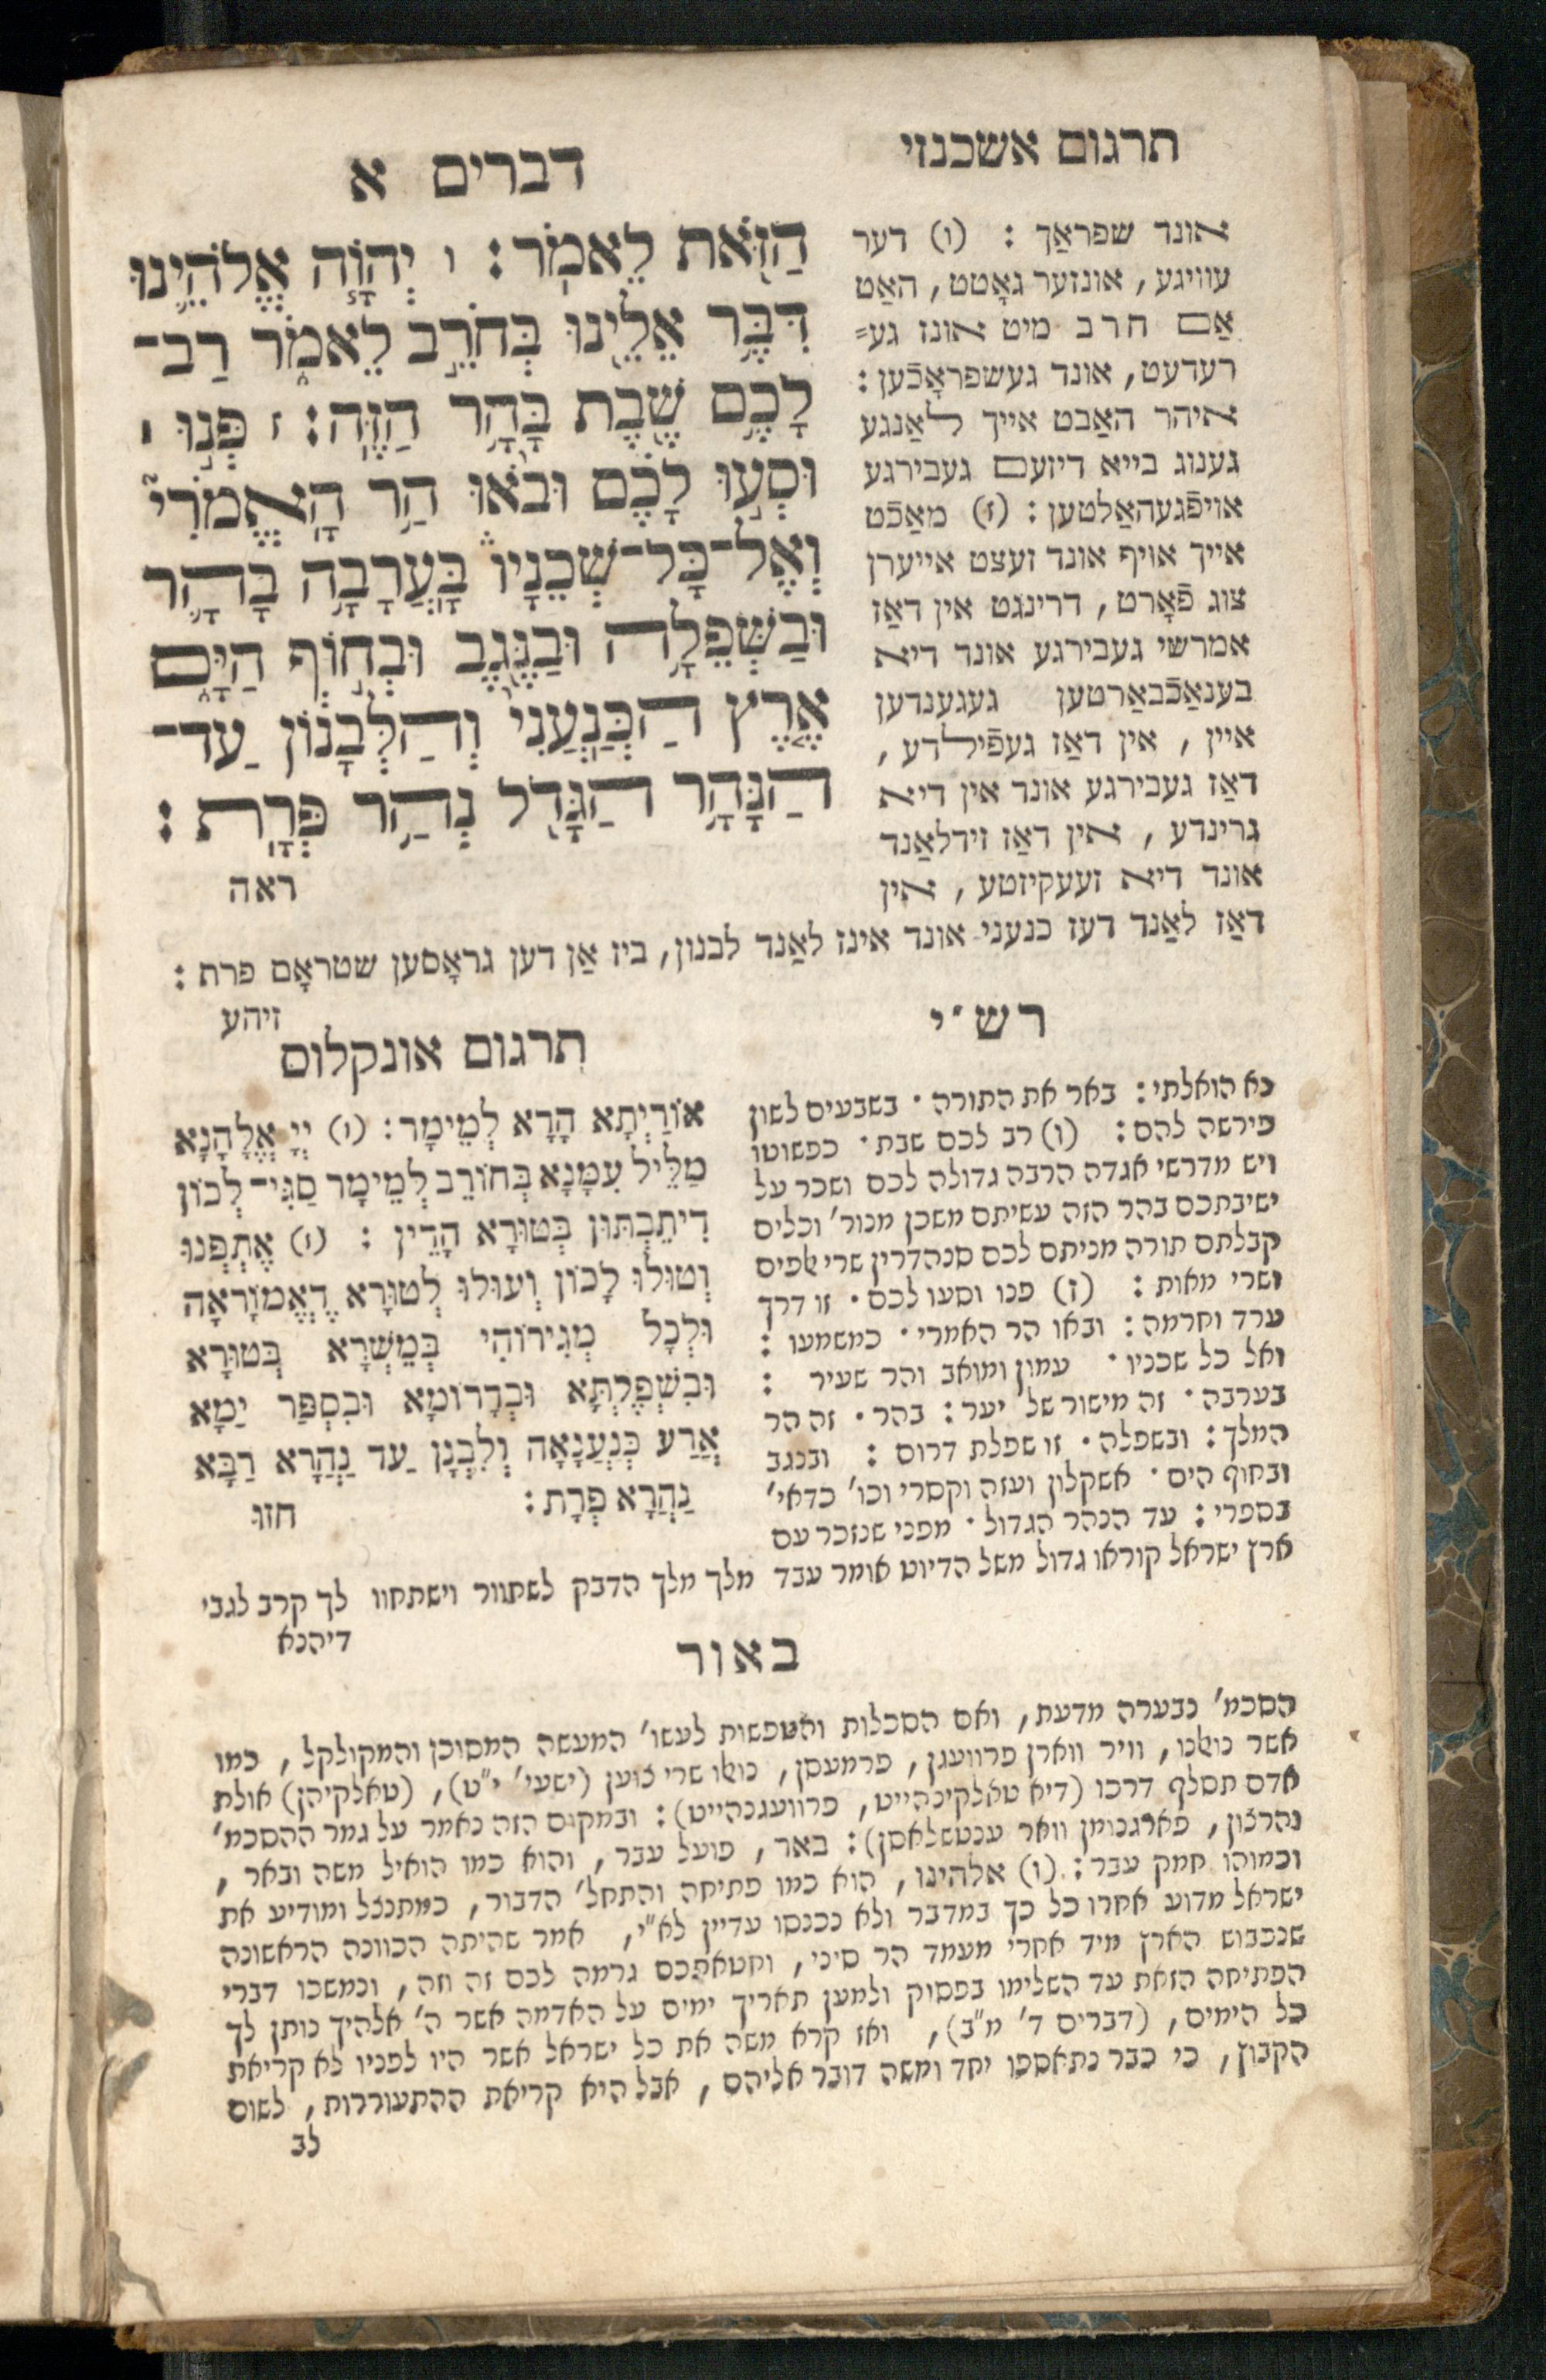 תרגום אשכנזי
דברים א
הַזֹּאת לֵאמֹר׃ ו יְהוָה אֱלֹהֵינוּ
דִּבֶּר אֵלֵינוּ בְּחֹרֵב לֵאמֹר רַב־
לָכֶם שֶׁבֶת בָּהָר הַזֶּה׃ ז פְּנוּ ׀
וּסְעוּ לָכֶם וּבֹאוּ הַר הָאֱמֹרִי
וְאֶל־כָּל־שְׁכֵנָיו בָּעֲרָבָה בָהָר
וּבַשְּׁפֵלָה וּבַנֶּגֶב וּבְחוֹף הַיָּם
אֶרֶץ הַכְּנַעֲנִי וְהַלְּבָנוֹן עַד־
הַנָּהָר הַגָּדֹל נְהַר פְּרָת׃
ראה
אונד שפראַך : (ו) דער
עוויגע, אונזער גאָטט, האַט
אַם חרב מיט אונז גע=
רעדעט, אונד געשפראָכֿען :
איהר האַבט אייך לאַנגע
גענוג בייא דיזעם געבירגע
אויפֿגעהאַלטען : (ז) מאַכֿט
אייך אויף אונד זעצט אייערן
צוג פֿאָרט, דרינגט אין דאַז
אמרשי געבירגע אונד דיא
בענאַכֿבאַרטען געגענדען
איין, אין דאַז געפֿילדע,
דאַז געבירגע אונד אין דיא
גרינדע, אין דאַז זידלאַנד
אונד דיא זעעקיזטע, אין
דאַז לאַנד דעז כנעני אונד אינז לאַנד לבנון, ביז אַן דען גראָסען שטראָם פרת :
זיהע
רש״י
כא הואלתי : באר את התורה · בשבעים לשון
פירשה להם : (ו) רב לכם שבת · כפשוטו
ויש מדרשי אגדה הרבה גדולה לכם ושכר על
ישיבתכם בהר הזה עשיתם משכן מנור׳ וכלים
קבלתם תורה מניתם לכם סנהדרין שרי אלפים
ושרי מאות : (ז) פנו וסעו לכם · זו דרך
ערד וחרמה : ובאו הר האמרי · כמשמעו :
ואל כל שכניו · עמון ומואב והר שעיר :
בערבה · זה מישור של יער : בהר · זה הר
המלך : ובשפלה · זו שפלת דרום : ובנגב
ובחוף הים · אשקלון ועזה וקסרי וכו׳ כדאי׳
בספרי : עד הנהר הגדול · מפני שנזכר עם
ארץ ישראל קוראו גדול משל הדיוט אומר עבד מלך מלך הדבק לשחוור וישתחוו לך קרב לגבי
דיהנא
תרגום אונקלוס
אוֹרַיְתָא הָדָא לְמֵימָר : (ו) יְיָ אֱלָהָנָא
מַלֵּיל עִמָּנָא בְּחוֹרֵב לְמֵימָר סַגִּי־לְכוֹן
דִיתֵבְתּוּן בְּטוּרָא הָדֵין : (ז) אִתְפְּנוּ
וְטוּלוּ לָכוֹן וְעוּלוּ לְטוּרָא דֶאֱמוֹרָאָה
וּלְכָל מְגִירוֹהִי בְּמֵשְׁרָא בְּטוּרָא
וּבִשְׁפֶלְתָּא וּבְדָרוֹמָא וּבִסְפַר יַמָא
אֲרַע כְּנַעֲנָאָה וְלִבְנָן עַד נַהֲרָא רַבָּא
נַהֲרָא פְרָת :
חזו
באור
הסכמ׳ נבערה מדעת, ואם הסכלות והטפשות לעשו׳ המעשה המסוכן והמקולקל, כמו
אשר נואלנו, וויר ווארן פרוועגן, פרמעסן, נואלו שרי צוען (ישעי׳ י״ט), (טאלקיהן) אולת
אדם תסלף דרכו (דיא טאלקיכהייט, פרוועגנהייט) : ובמקום הזה נאמר על גמר ההסכמ׳
והרצון, פארגנומן וואר ענטשלאסן) : באר, פועל עבר, והוא כמו הואיל משה ובאר,
וכמוהו חמק עבר : (ו) אלהינו, הוא כמו פתיחה והתחל׳ הדבור, כמתנצל ומודיע את
ישראל מדוע אחרו כל כך במדבר ולא נכנסו עדיין לא״י, אמר שהיתה הכוונה הראשונה
שנכבוש הארץ מיד אחרי מעמד הר סיני, וחטאתכם גרמה לכם זה וזה, ונמשכו דברי
הפתיחה הזאת עד השלימו בפסוק ולמען תאריך ימים על האדמה אשר ה׳ אלהיך נותן לך
כל הימים, (דברים ד׳ מ״ב), ואז קרא משה את כל ישראל אשר היו לפניו לא קריאת
הקבוץ, כי כבר נתאספו יחד ומשה דובר אליהם, אבל היא קריאת ההתעוררות, לשום
לב